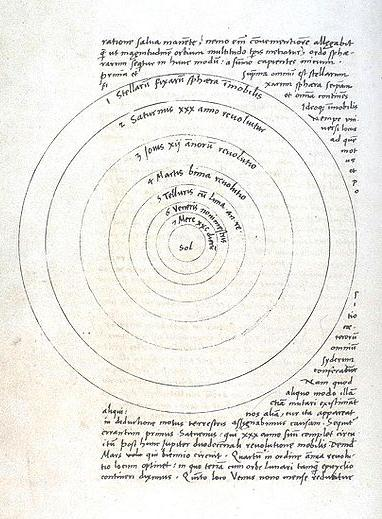 ratione salua manente, nemo em conuenientiore allegabit
q ut magnitudinem orbium multitudo tpis metiatur, ordo sphæ-
rarum sequitur in hunc modum: a summo capientes initium.
prima et suprema omnium est stellarum
fixarum sphæra seipsam
et omnia continens
Ideoque immobilis
nempe uni
uersi locus
ad que
mot
us
et
p
o
1 Stellarum fixarum sphæra immobilis
2 Saturnus xxx anno reuoluitur
3 Jouis xij annorum reuolutio
4 Martis bima reuolutio
5 Telluris cum Luna an. re.
6 Veneris nonimestris
7 Merc xxc dierum
Sol
S
i
tio
cæ-
terorum
omnium
syderum
conferatur
Nam quod
aliquo modo illam
etiam mutari existimant
aliqui: nos aliam, cur ita appareat
in deductione motus terrestris assignabimus causam. Sequitur
errantium primus Saturnus: qui xxx anno suum complet circu
itum post hunc Jupiter duodecennali reuolutione mobilis. Deinde
Mars qui biennio circuit. Quartum in ordine annua reuolu-
tio locum optinet: in quo terra cum orbe Lunari tanquam epicyclio
contineri diximus. Quinto loco Venus nono mense reducitur